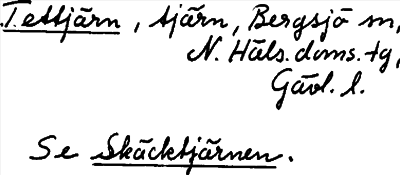 Tettjärn, tjärn, Bergsjö sn,
N. Häls. doms. tg,
Gävl. l.
Se Skäcktjärnen.